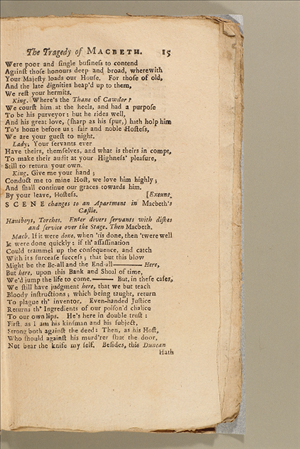 The Tragedy of MACBETH. 15
Were poor and ſingle buſineſs to contend
Againſt thoſe honours deep and broad, wherewith
Your Majeſty loads our Houſe. For thoſe of old,
And the late dignities heap'd up to them,
We reſt your hermits.
King. Where's the Thane of Cawdor?
We courſt him at the heels, and had a purpoſe
To be his purveyor: but he rides well,
And his great love, (ſharp as his ſpur,) hath holp him
To's home before us; fair and noble Hoſteſs,
We are your gueſt to night.
Lady. Your ſervants ever
Have theirs, themſelves, and what is theirs in compt,
To make their audit at your Highneſs' pleaſure,
Still to return your own.
King. Give me your hand;
Conduct me to mine Hoſt, we love him highly;
And ſhall continue our graces towards him.
By your leave, Hoſteſs. [Exeunt.
SCENE changes to an Apartment in Macbeth's
Caſtle.
Hautboys, Torches. Enter divers ſervants with diſhes
and ſervice over the Stage. Then Macbeth.
Macb. If it were done, when 'tis done, then 'twere well
It were done quickly: if th' aſſaſſination
Could trammel up the conſequence, and catch
With its ſurceaſe ſucceſs; that but this blow
Might be the Be-all and the End-all—— Here,
But here, upon this Bank and Shoal of time,
We'd jump the life to come.—— But, in theſe caſes,
We ſtill have judgment here, that we but teach
Bloody inſtructions; which being taught, return
To plague th' inventor. Even-handed Juſtice
Returns th' Ingredients of our poiſon'd chalice
To our own lips. He's here in double truſt:
Firſt as I am his kinſman and his ſubject,
Strong both againſt the deed: Then, as his Hoſt,
Who ſhould againſt his murd'rer ſhut the door,
Not bear the knife my ſelf. Beſides, this Duncan
Hath